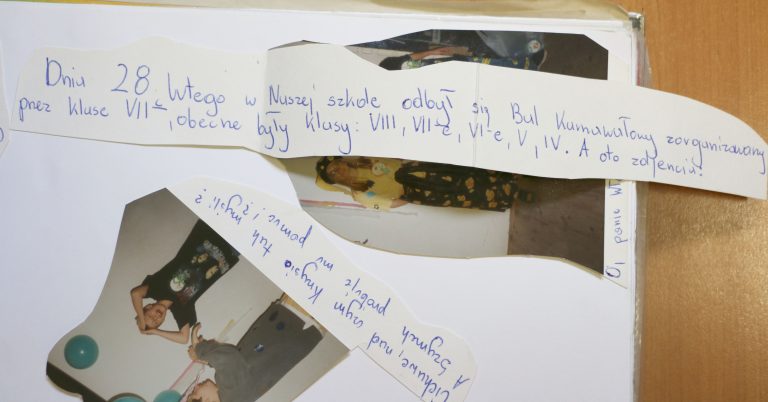 Dniu 28 lutego w Naszej szkole odbył się Bal Karnawałowy zorganizowany
przez klase VII c, obecne były klasy: VIII, VII-c, VI-e, V, IV. A oto zdjencia:
Ciekawe, nad czym Krzysio tak myśli?
A Szymek próbuje mu pomuc
Oj panie